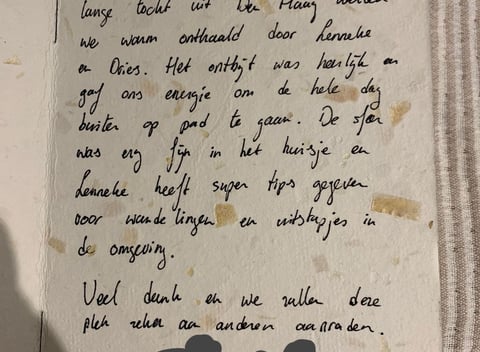 lange tocht uit Den Haag werden
we warm onthaald door Lenneke
en Dries. Het ontbijt was heerlijk en
gaf ons energie om de hele dag
buiten op pad te gaan. De sfeer
was erg fijn in het huisje en
Lenneke heeft super tips gegeven
voor wandelingen en uitstapjes in
de omgeving.
Veel dank en we zullen deze
plek zeker aan anderen aanraden.